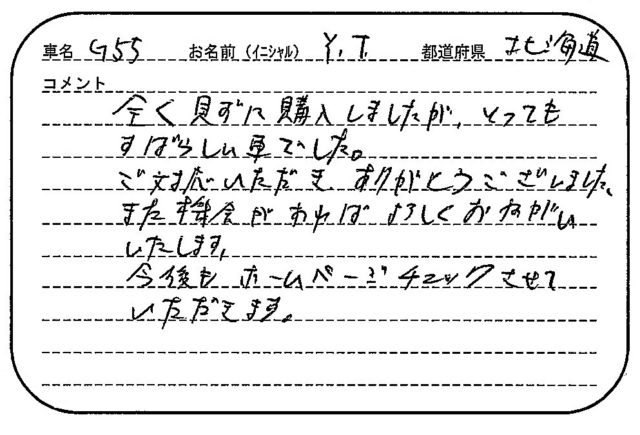 車名 G55 お名前（イニシャル） Y.T. 都道府県 北海道
コメント
全く見ずに購入しましたが、とっても
すばらしい車でした。
ご対応いただき ありがとうございました。
また機会があれば よろしくおねがい
いたします。
今後も ホームページチェックさせて
いただきます。